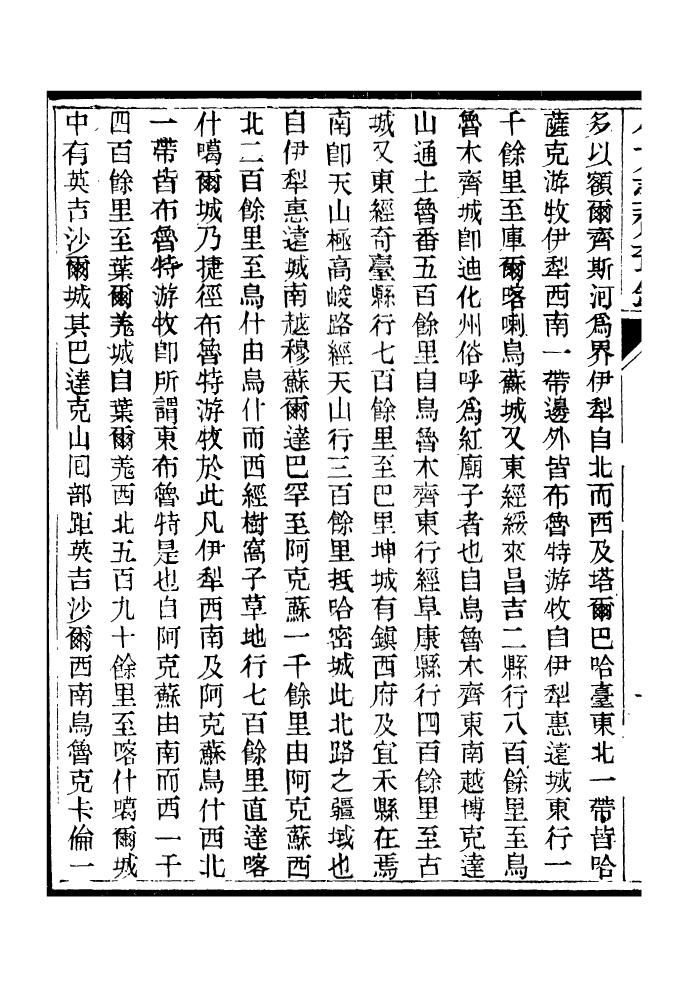 多以額爾齊斯河爲界伊犁自北而西及塔爾巴哈臺東北一帶皆哈
薩克游牧伊犁西南一帶邊外皆布魯特游牧自伊犁惠遠城東行一
千餘里至庫爾喀喇烏蘇城又東經綏來昌吉二縣行八百餘里至烏
魯木齊城卽迪化州俗呼爲紅廟子者也自烏魯木齊東南越博克達
山通土魯番五百餘里自烏魯木齊東行經阜康縣行四百餘里至古
城又東經奇臺縣行七百餘里至巴里坤城有鎭西府及宜禾縣在焉
南卽天山極高峻路經天山行三百餘里抵哈密城此北路之疆域也
自伊犁惠遠城南越穆蘇爾達巴罕至阿克蘇一千餘里由阿克蘇西
北二百餘里至烏什由烏什而西經樹窩子草地行七百餘里直達喀
什噶爾城乃捷徑布魯特游牧於此凡伊犁西南及阿克蘇烏什西北
一帶皆布魯特游牧卽所謂東布魯特是也自阿克蘇由南而西一千
四百餘里至葉爾羗城自葉爾羗西北五百九十餘里至喀什噶爾城
中有英吉沙爾城其巴達克山回部距英吉沙爾西南烏魯克卡倫一